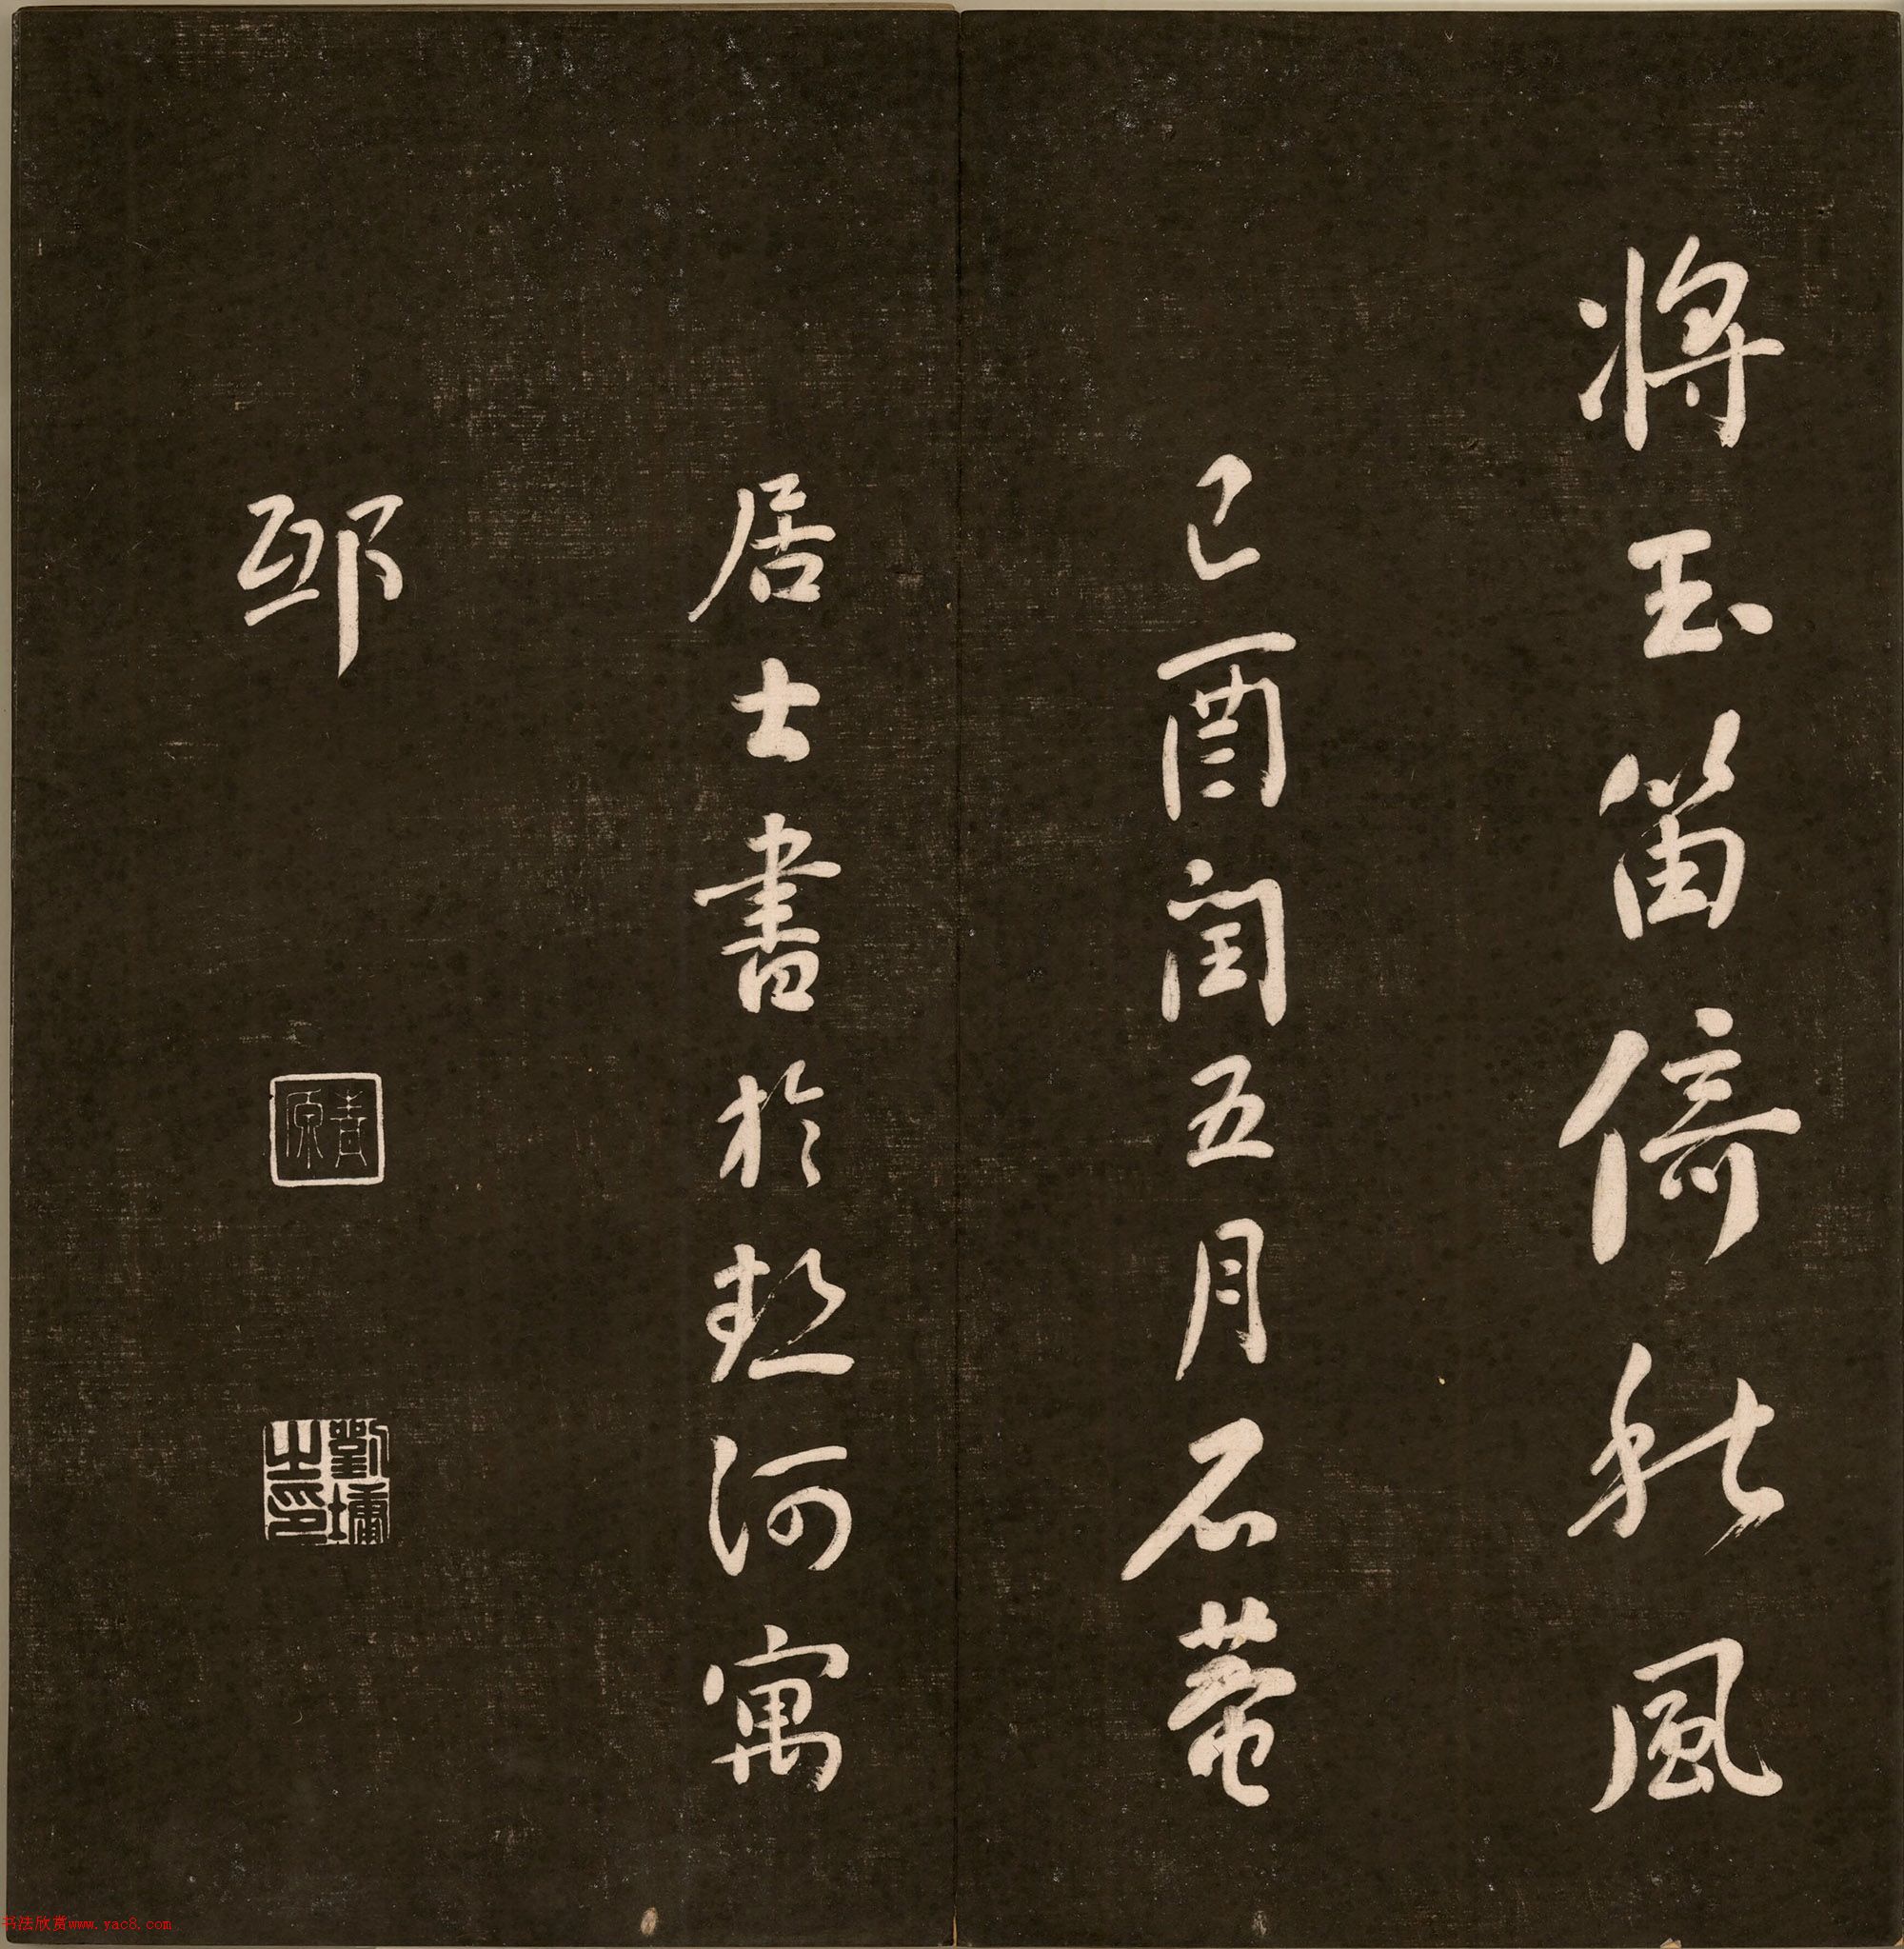 将玉笛倚秋風
己酉閏五月石菴
居士書於熱河寓
邸
青原
劉墉之印
书法欣赏www.yac8.com